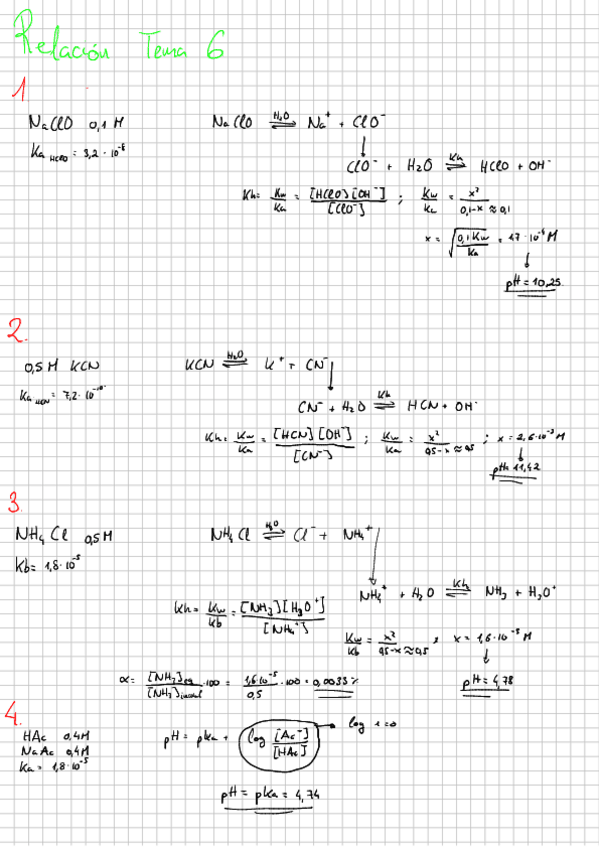 Relación Tema 6
1
NaClO 0,1 M
Ka HClO = 3,2 · 10⁻⁸
NaClO ⇌ (H₂O) Na⁺ + ClO⁻
ClO⁻ + H₂O ⇌ (Kh) HClO + OH⁻
Kh = Kw/Ka = [HClO][OH⁻]/[ClO⁻] ; Kw/Ka = x²/0,1-x≈0,1
x = √(0,1 Kw/Ka) = 1,7 · 10⁻⁴ M
pH = 10,25
2.
0,5 M KCN
Ka HCN = 7,2 · 10⁻¹⁰
KCN ⇌ (H₂O) K⁺ + CN⁻
CN⁻ + H₂O ⇌ (Kh) HCN + OH⁻
Kh = Kw/Ka = [HCN][OH⁻]/[CN⁻] ; Kw/Ka = x²/0,5-x≈0,5 ; x = 2,6 · 10⁻³ M
pH = 11,42
3.
NH₄Cl 0,5 M
Kb = 1,8 · 10⁻⁵
NH₄Cl ⇌ (H₂O) Cl⁻ + NH₄⁺
NH₄⁺ + H₂O ⇌ (Kh) NH₃ + H₃O⁺
Kh = Kw/Kb = [NH₃][H₃O⁺]/[NH₄⁺]
Kw/Kb = x²/0,5-x≈0,5 , x = 1,6 · 10⁻⁵ M
pH = 4,78
α = [NH₃]eq/[NH₃]inicial · 100 = 1,6·10⁻⁵/0,5 · 100 = 0,0033 %
4.
HAc 0,4 M
NaAc 0,4 M
Ka = 1,8 · 10⁻⁵
pH = pKa + log [Ac⁻]/[HAc] → log 1 = 0
pH = pKa = 4,74